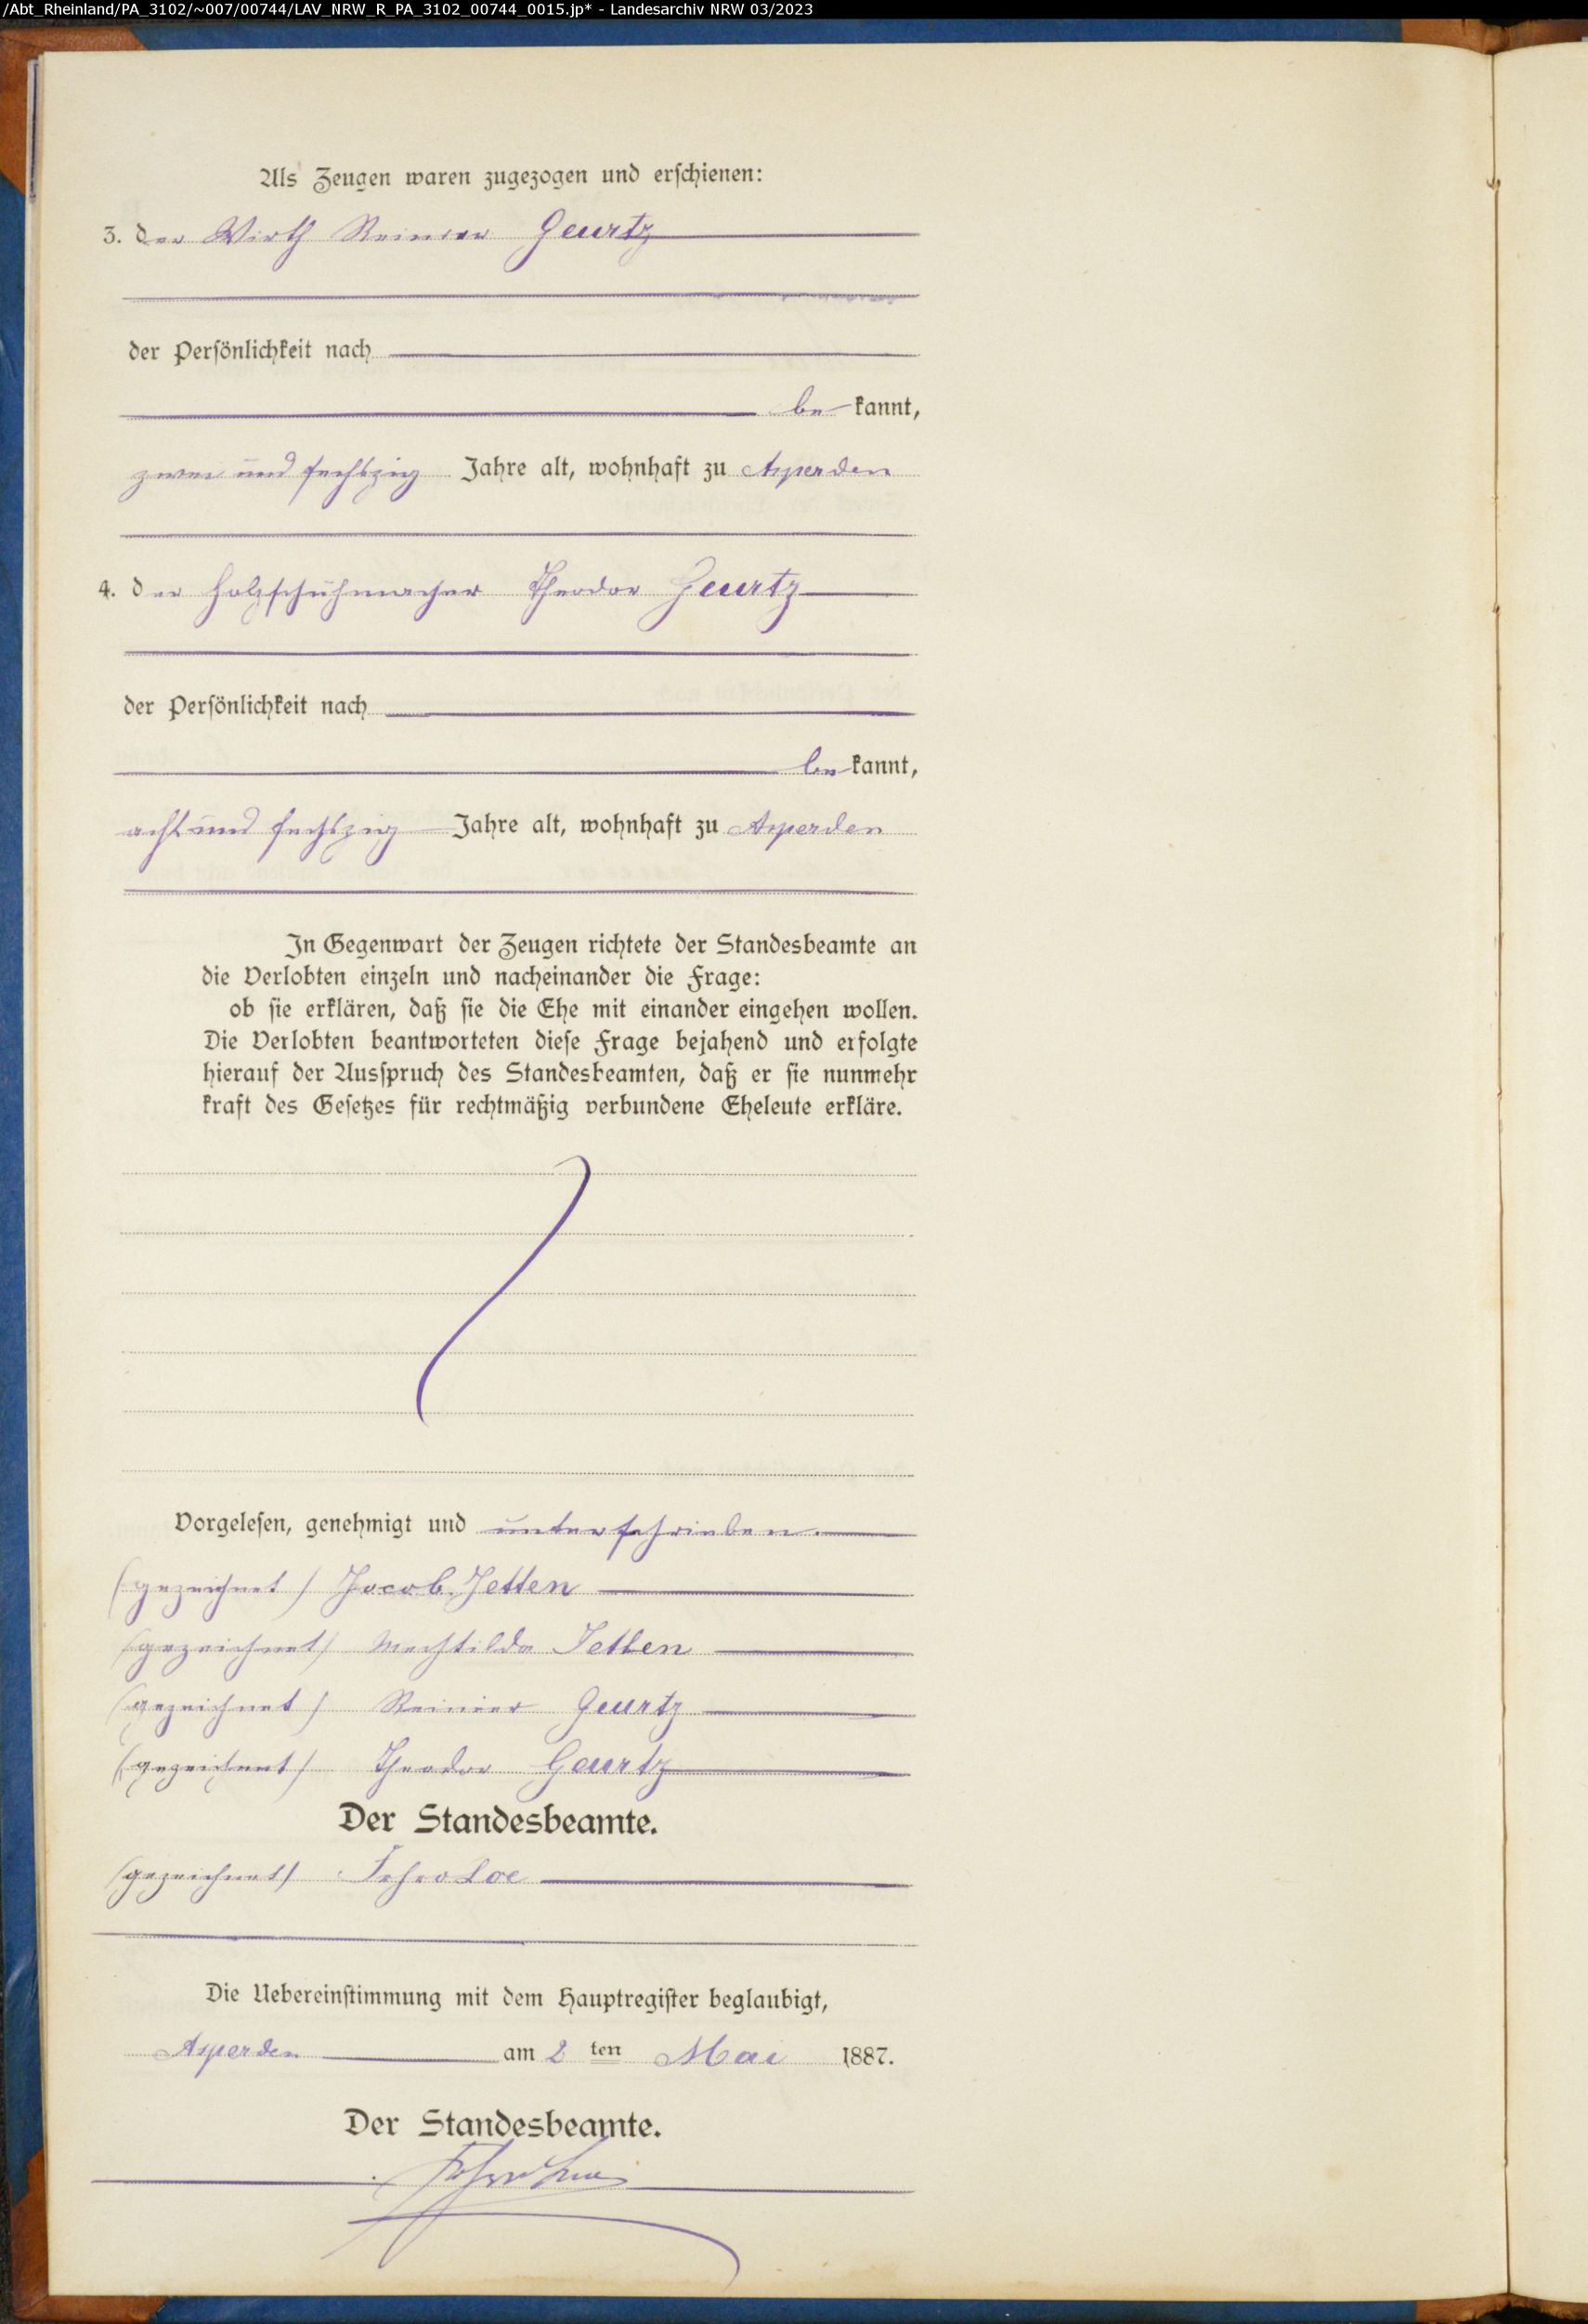 /Abt_Rheinland/PA_3102/~007/00744/LAV_NRW_R_PA_3102_00744_0015.jp* - Landesarchiv NRW 03/2023
Als Zeugen waren zugezogen und erschienen:
3. der Wirth Reinier Geurtz
der Persönlichkeit nach
be kannt,
zwei und sechszig Jahre alt, wohnhaft zu Asperden
4. der Holzschuhmacher Theodor Geurtz
der Persönlichkeit nach
be kannt,
acht und sechszig Jahre alt, wohnhaft zu Asperden
In Gegenwart der Zeugen richtete der Standesbeamte an
die Verlobten einzeln und nacheinander die Frage:
ob sie erklären, daß sie die Ehe mit einander eingehen wollen.
Die Verlobten beantworteten diese Frage bejahend und erfolgte
hierauf der Ausspruch des Standesbeamten, daß er sie nunmehr
kraft des Gesetzes für rechtmäßig verbundene Eheleute erkläre.
Vorgelesen, genehmigt und unterschrieben.
(gezeichnet) Jacob Jetten
(gezeichnet) Mechtilda Jetten
(gezeichnet) Reinier Geurtz
(gezeichnet) Theodor Geurtz
Der Standesbeamte.
(gezeichnet)
Die Uebereinstimmung mit dem Hauptregister beglaubigt,
Asperden am 2 ten Mai 1887.
Der Standesbeamte.